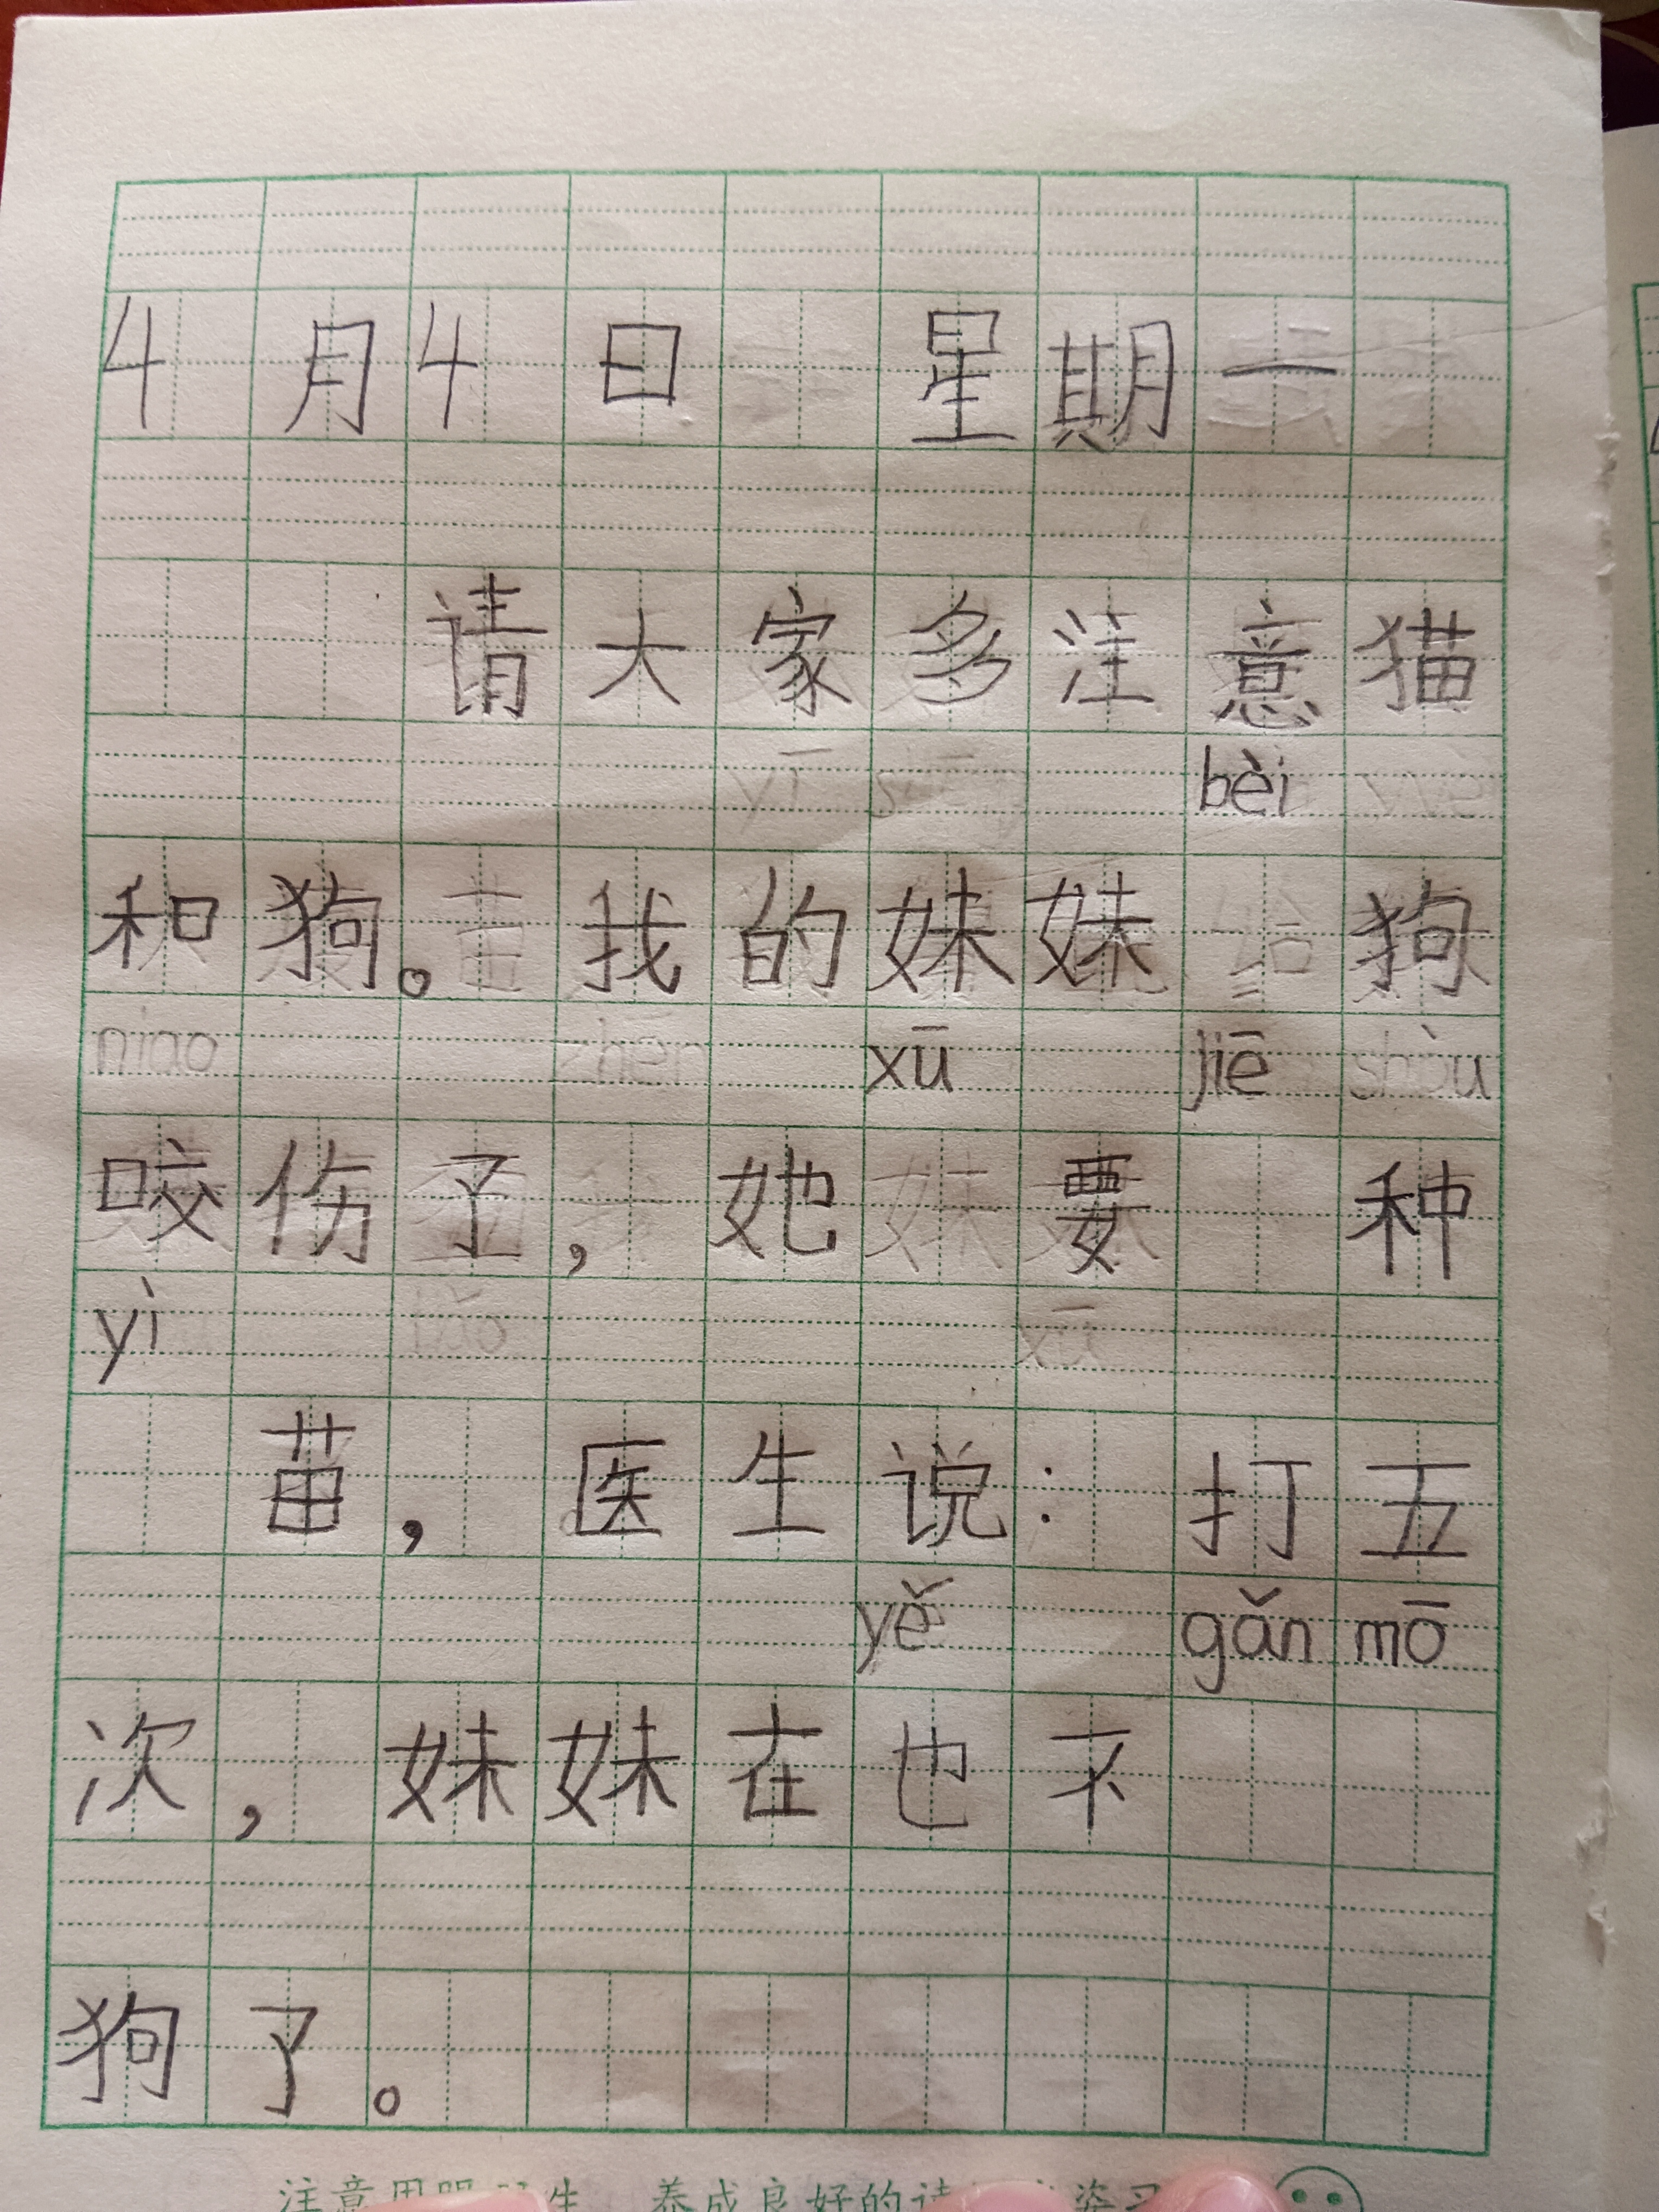 4月4日 星期一
请大家多注意猫
bèi
和狗。我的妹妹 狗
xū jiē
咬伤了，她 要 种
yì
苗，医生说：打五
yě gǎn mō
次，妹妹在也不
狗了。